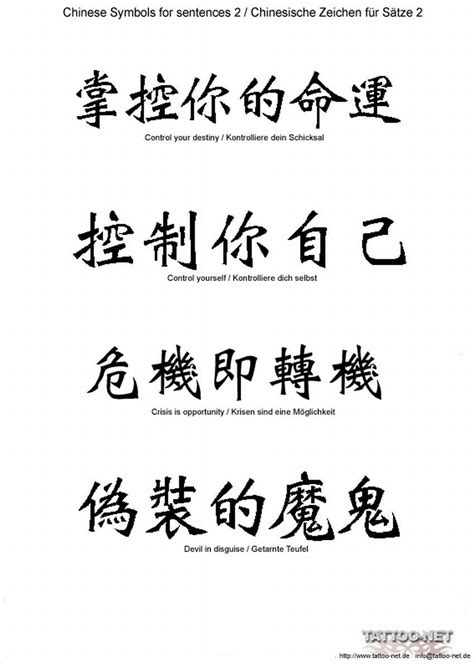 Chinese Symbols for sentences 2 / Chinesische Zeichen für Sätze 2
掌控你的命運
Control your destiny / Kontrolliere dein Schicksal
控制你自己
Control yourself / Kontrolliere dich selbst
危機即轉機
Crisis is opportunity / Krisen sind eine Möglichkeit
偽裝的魔鬼
Devil in disguise / Getarnte Teufel
TATTOO-NET
http://www.tattoo-net.de info@tattoo-net.de